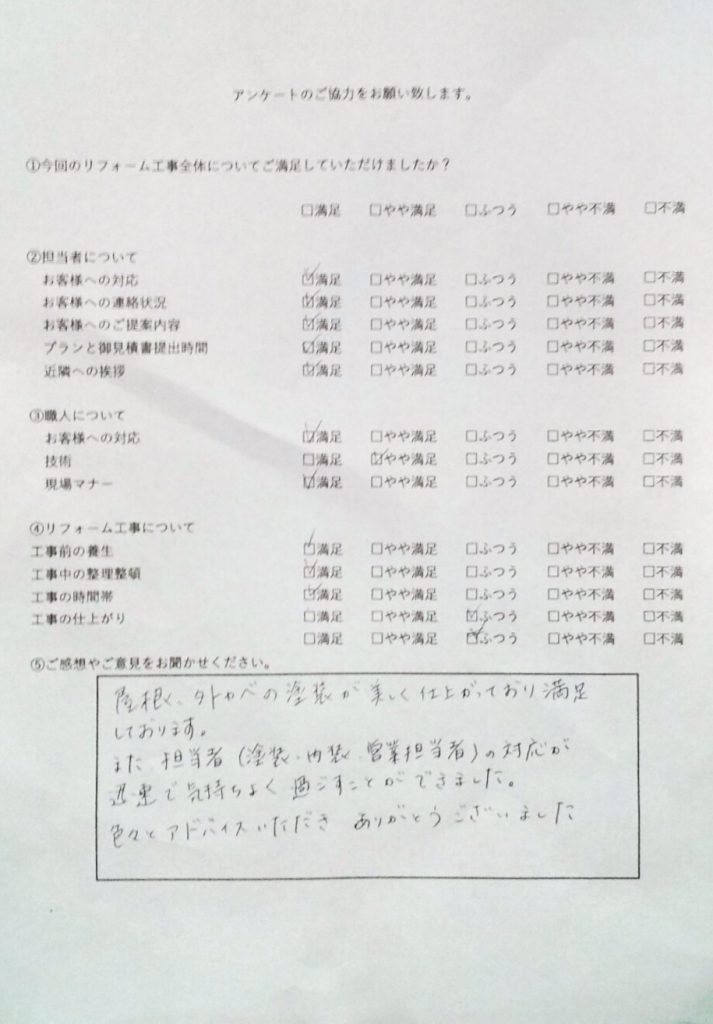 アンケートのご協力をお願い致します。
①今回のリフォーム工事全体についてご満足していただけましたか？
□満足 □やや満足 □ふつう □やや不満 □不満
②担当者について
お客様への対応 ☑満足 □やや満足 □ふつう □やや不満 □不満
お客様への連絡状況 ☑満足 □やや満足 □ふつう □やや不満 □不満
お客様へのご提案内容 ☑満足 □やや満足 □ふつう □やや不満 □不満
プランと御見積書提出時間 ☑満足 □やや満足 □ふつう □やや不満 □不満
近隣への挨拶 ☑満足 □やや満足 □ふつう □やや不満 □不満
③職人について
お客様への対応 ☑満足 □やや満足 □ふつう □やや不満 □不満
技術 □満足 ☑やや満足 □ふつう □やや不満 □不満
現場マナー ☑満足 □やや満足 □ふつう □やや不満 □不満
④リフォーム工事について
工事前の養生 ☑満足 □やや満足 □ふつう □やや不満 □不満
工事中の整理整頓 ☑満足 □やや満足 □ふつう □やや不満 □不満
工事の時間帯 ☑満足 □やや満足 □ふつう □やや不満 □不満
工事の仕上がり □満足 □やや満足 ☑ふつう □やや不満 □不満
□満足 □やや満足 ☑ふつう □やや不満 □不満
⑤ご感想やご意見をお聞かせください。
屋根、外カベの塗装が美しく仕上がっており満足
しております。
また 担当者（塗装、内装、営業担当者）の対応が
迅速で気持ちよく過ごすことができました。
色々とアドバイスいただき ありがとうございました